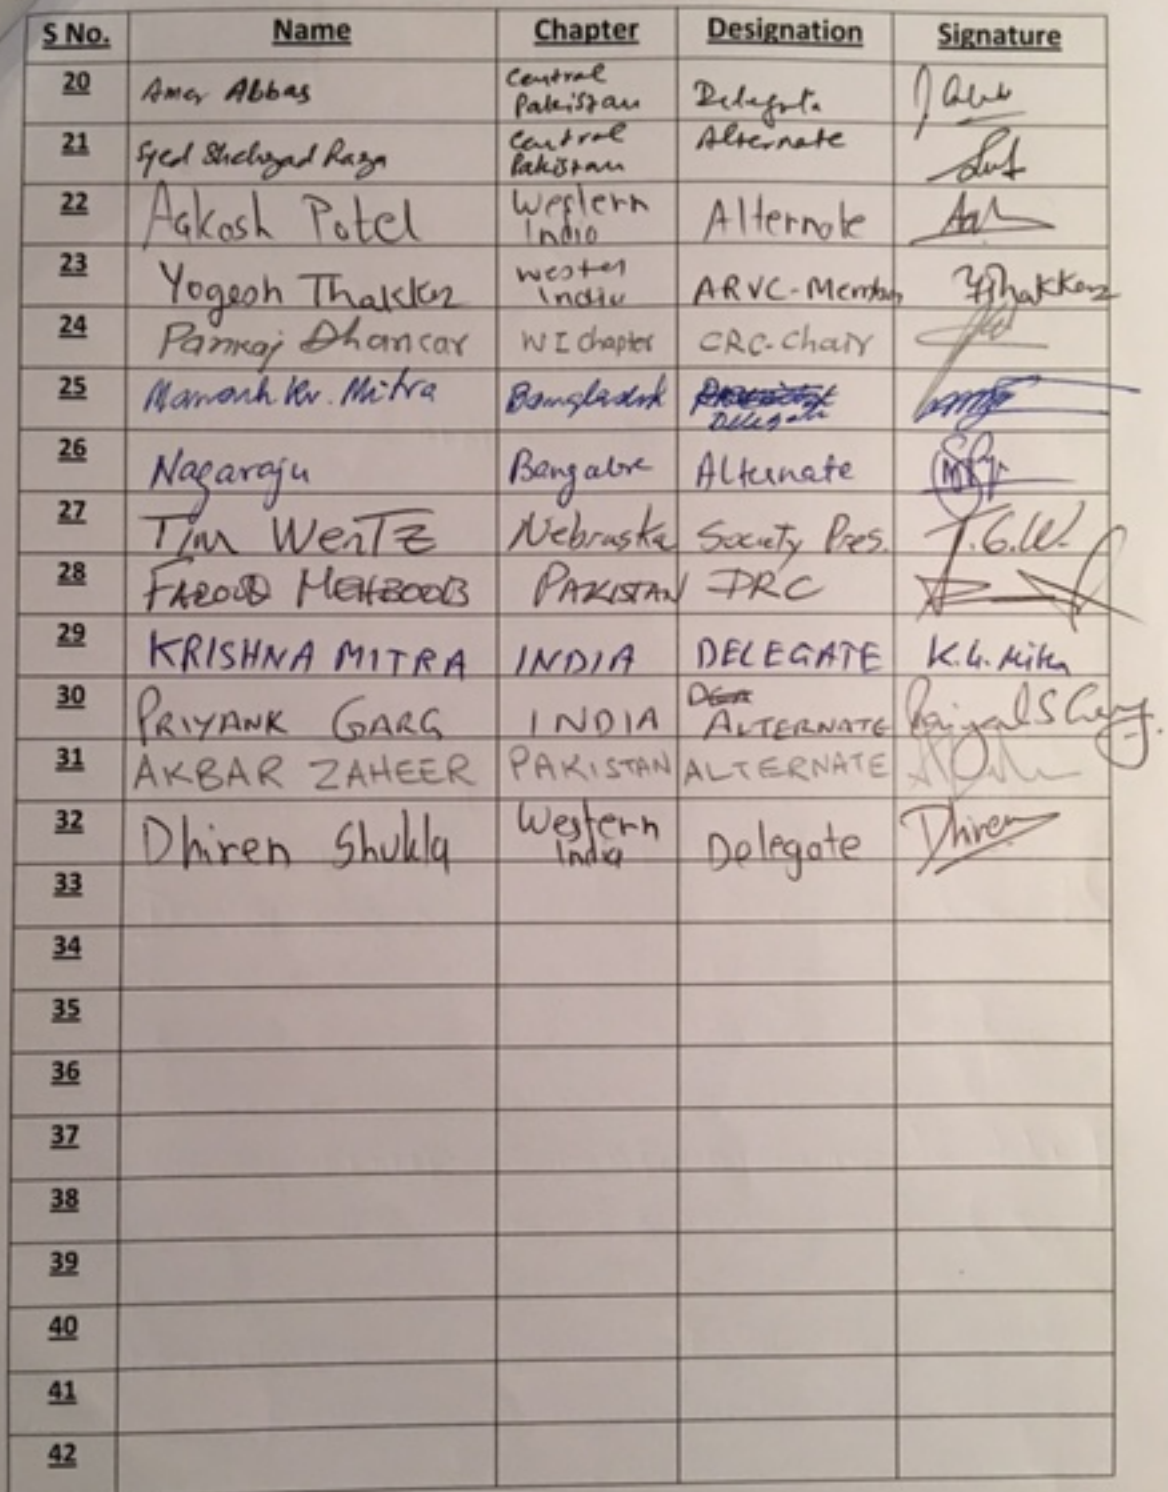 S No. Name Chapter Designation Signature
20 Amer Abbas Central Pakistan Delegate
21 Syed Shehzad Raza Central Pakistan Alternate
22 Aakash Patel Western India Alternate
23 Yogesh Thakkar Western India ARVC-Member YThakkar
24 Pankaj Dhancar WI chapter CRC-Chair
25 Manash Kr. Mitra Bangladesh Delegate
26 Nagaraju Bangalore Alternate
27 Tim WERTZ Nebraska Society Pres. T.G.W.
28 FAROOQ MEHBOOB PAKISTAN DRC
29 KRISHNA MITRA INDIA DELEGATE K.G. Mitra
30 PRIYANK GARG INDIA ALTERNATE
31 AKBAR ZAHEER PAKISTAN ALTERNATE
32 Dhiren Shukla Western India Delegate Dhiren
33
34
35
36
37
38
39
40
41
42